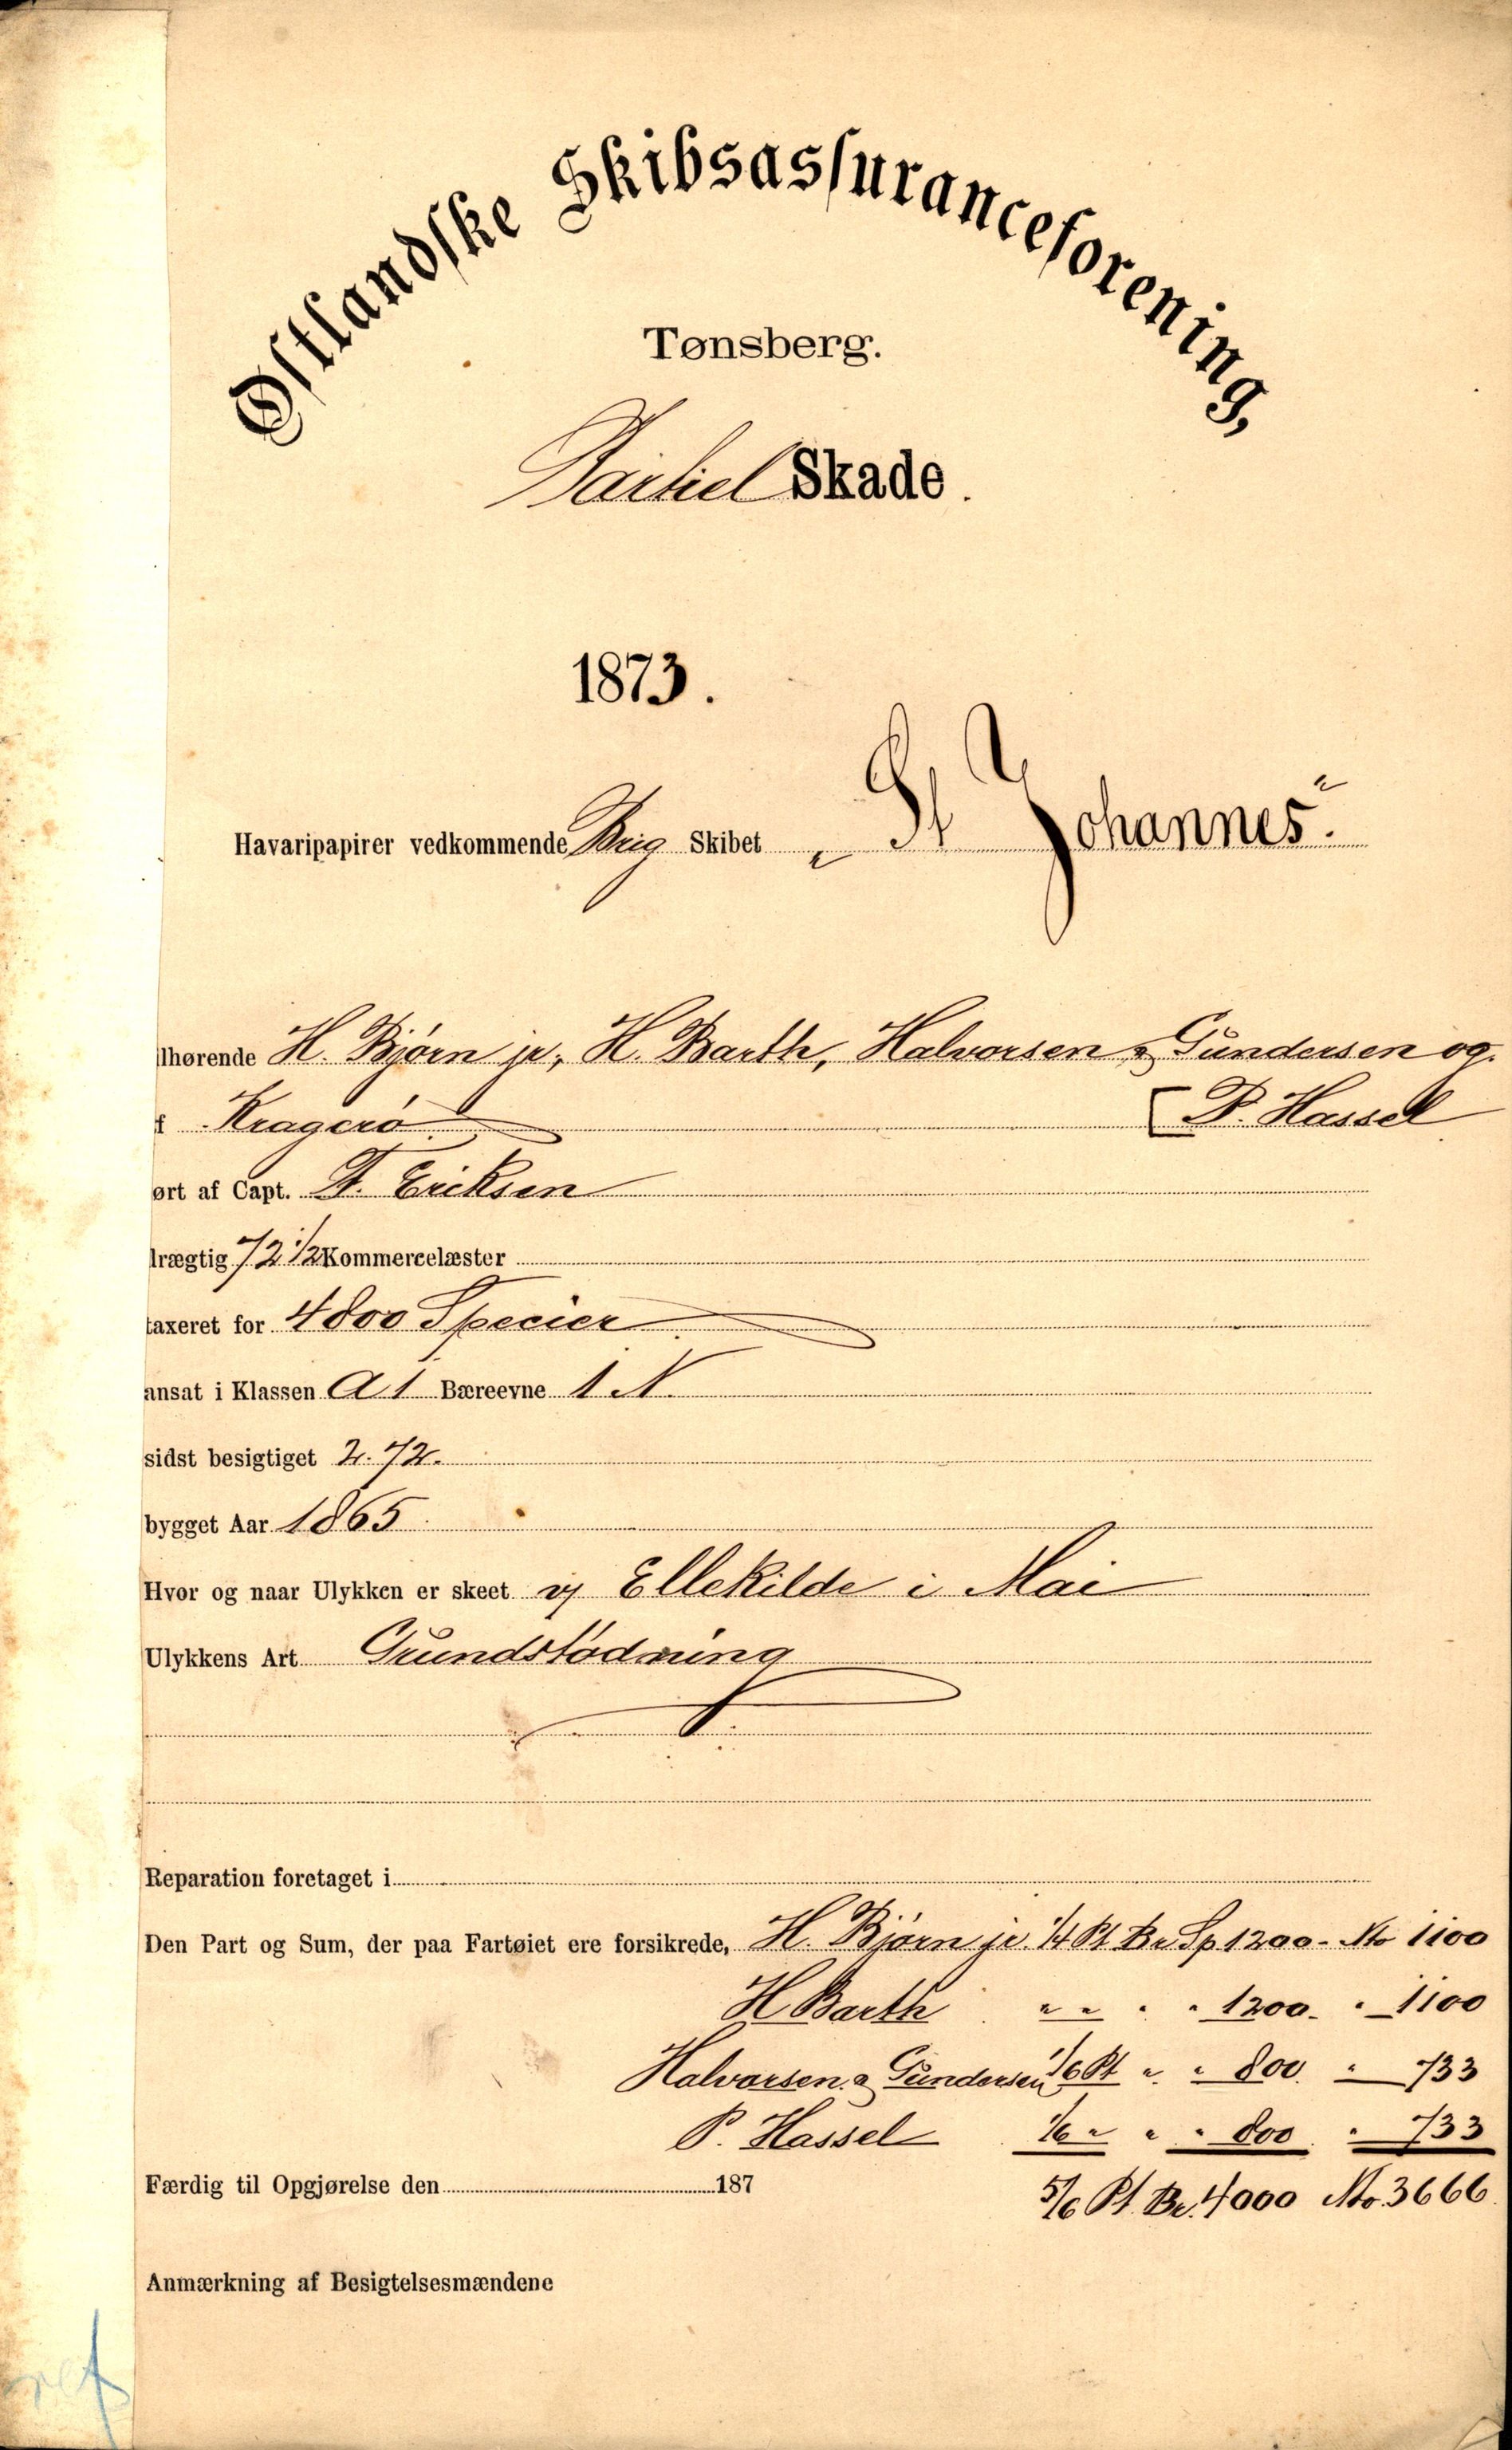 Østlandske Skibsassuranceforening,
Tønsberg.
Partiel Skade.
1873.
Havaripapirer vedkommende Brig Skibet „St Johannes“.
lhørende H. Bjørn jr., H. Barth, Halvorsen & Gundersen og
f Kragerø [P. Hassel
ørt af Capt. F. Eriksen
lrægtig 72 1/2 Kommercelæster
taxeret for 4800 Specier
ansat i Klassen A 1 Bæreevne 1 N.
sidst besigtiget 2.72.
bygget Aar 1865.
Hvor og naar Ulykken er skeet v/ Ellekilde i Mai
Ulykkens Art Grundstødning
Reparation foretaget i
Den Part og Sum, der paa Fartøiet ere forsikrede, H. Bjørn jr. 1/4 Pt Br. Sp 1200 - Nto 1100
H Barth " " " " 1200 - " 1100
Halvorsen & Gundersen 1/6 Pt " " 800 " 733
P. Hassel 1/6 " " " 800 " 733
Færdig til Opgjørelse den 187
5/6 Pt. Br. 4000 Nto. 3666
Anmærkning af Besigtelsesmændene